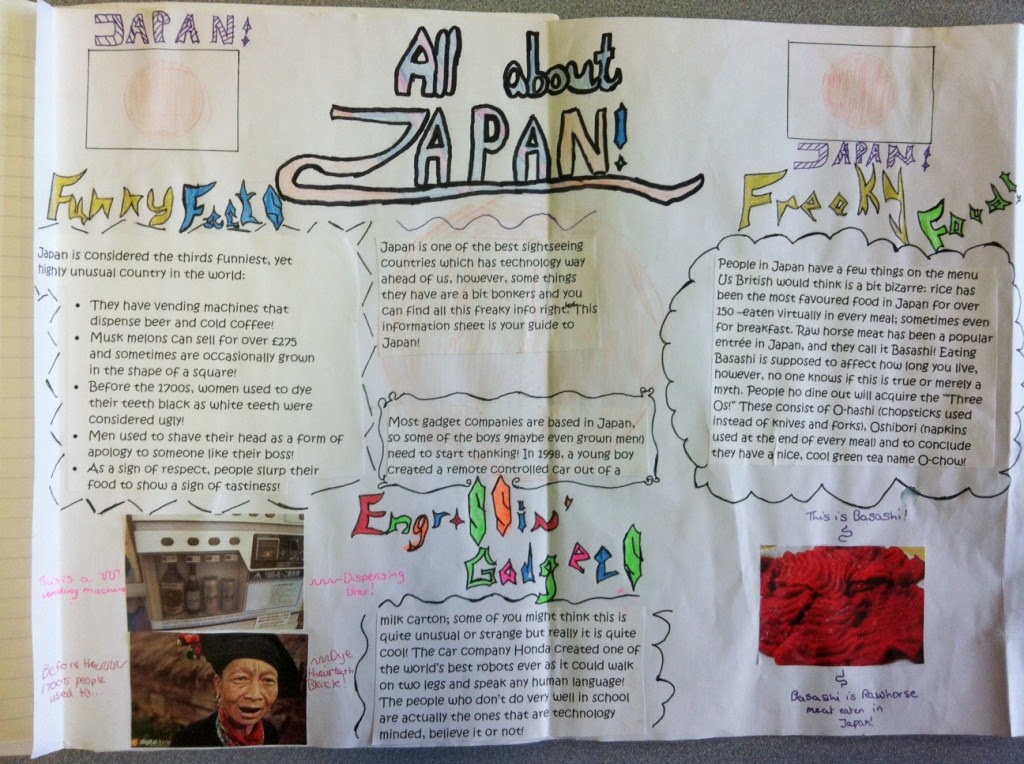 JAPAN!
All about
JAPAN!
JAPAN!
Funny Facts
Japan is considered the thirds funniest, yet
highly unusual country in the world:
• They have vending machines that
dispense beer and cold coffee!
• Musk melons can sell for over £275
and sometimes are occasionally grown
in the shape of a square!
• Before the 1700s, women used to dye
their teeth black as white teeth were
considered ugly!
• Men used to shave their head as a form of
apology to someone like their boss!
• As a sign of respect, people slurp their
food to show a sign of tastiness!
This is a
vending machine
Dispensing
Beer!
Before the
1700s people
used to...
Dye
their teeth
Black!
Japan is one of the best sightseeing
countries which has technology way
ahead of us, however, some things
they have are a bit bonkers and you
can find all this freaky info right. This
information sheet is your guide to
Japan!
Most gadget companies are based in Japan,
so some of the boys 9maybe even grown men!)
need to start thanking! In 1998, a young boy
created a remote controlled car out of a
Engrossin'
Gadgets
milk carton; some of you might think this is
quite unusual or strange but really it is quite
cool! The car company Honda created one of
the world's best robots ever as it could walk
on two legs and speak any human language!
The people who don't do very well in school
are actually the ones that are technology
minded, believe it or not!
Freaky Food!
People in Japan have a few things on the menu
Us British would think is a bit bizarre: rice has
been the most favoured food in Japan for over
150 –eaten virtually in every meal; sometimes even
for breakfast. Raw horse meat has been a popular
entrée in Japan, and they call it Basashi! Eating
Basashi is supposed to affect how long you live,
however, no one knows if this is true or merely a
myth. People ho dine out will acquire the "Three
Os!" These consist of O-hashi (chopsticks used
instead of knives and forks), Oshibori (napkins
used at the end of every meal) and to conclude
they have a nice, cool green tea name O-chow!
This is Basashi!
Basashi is Rawhorse
meat eaten in
Japan!